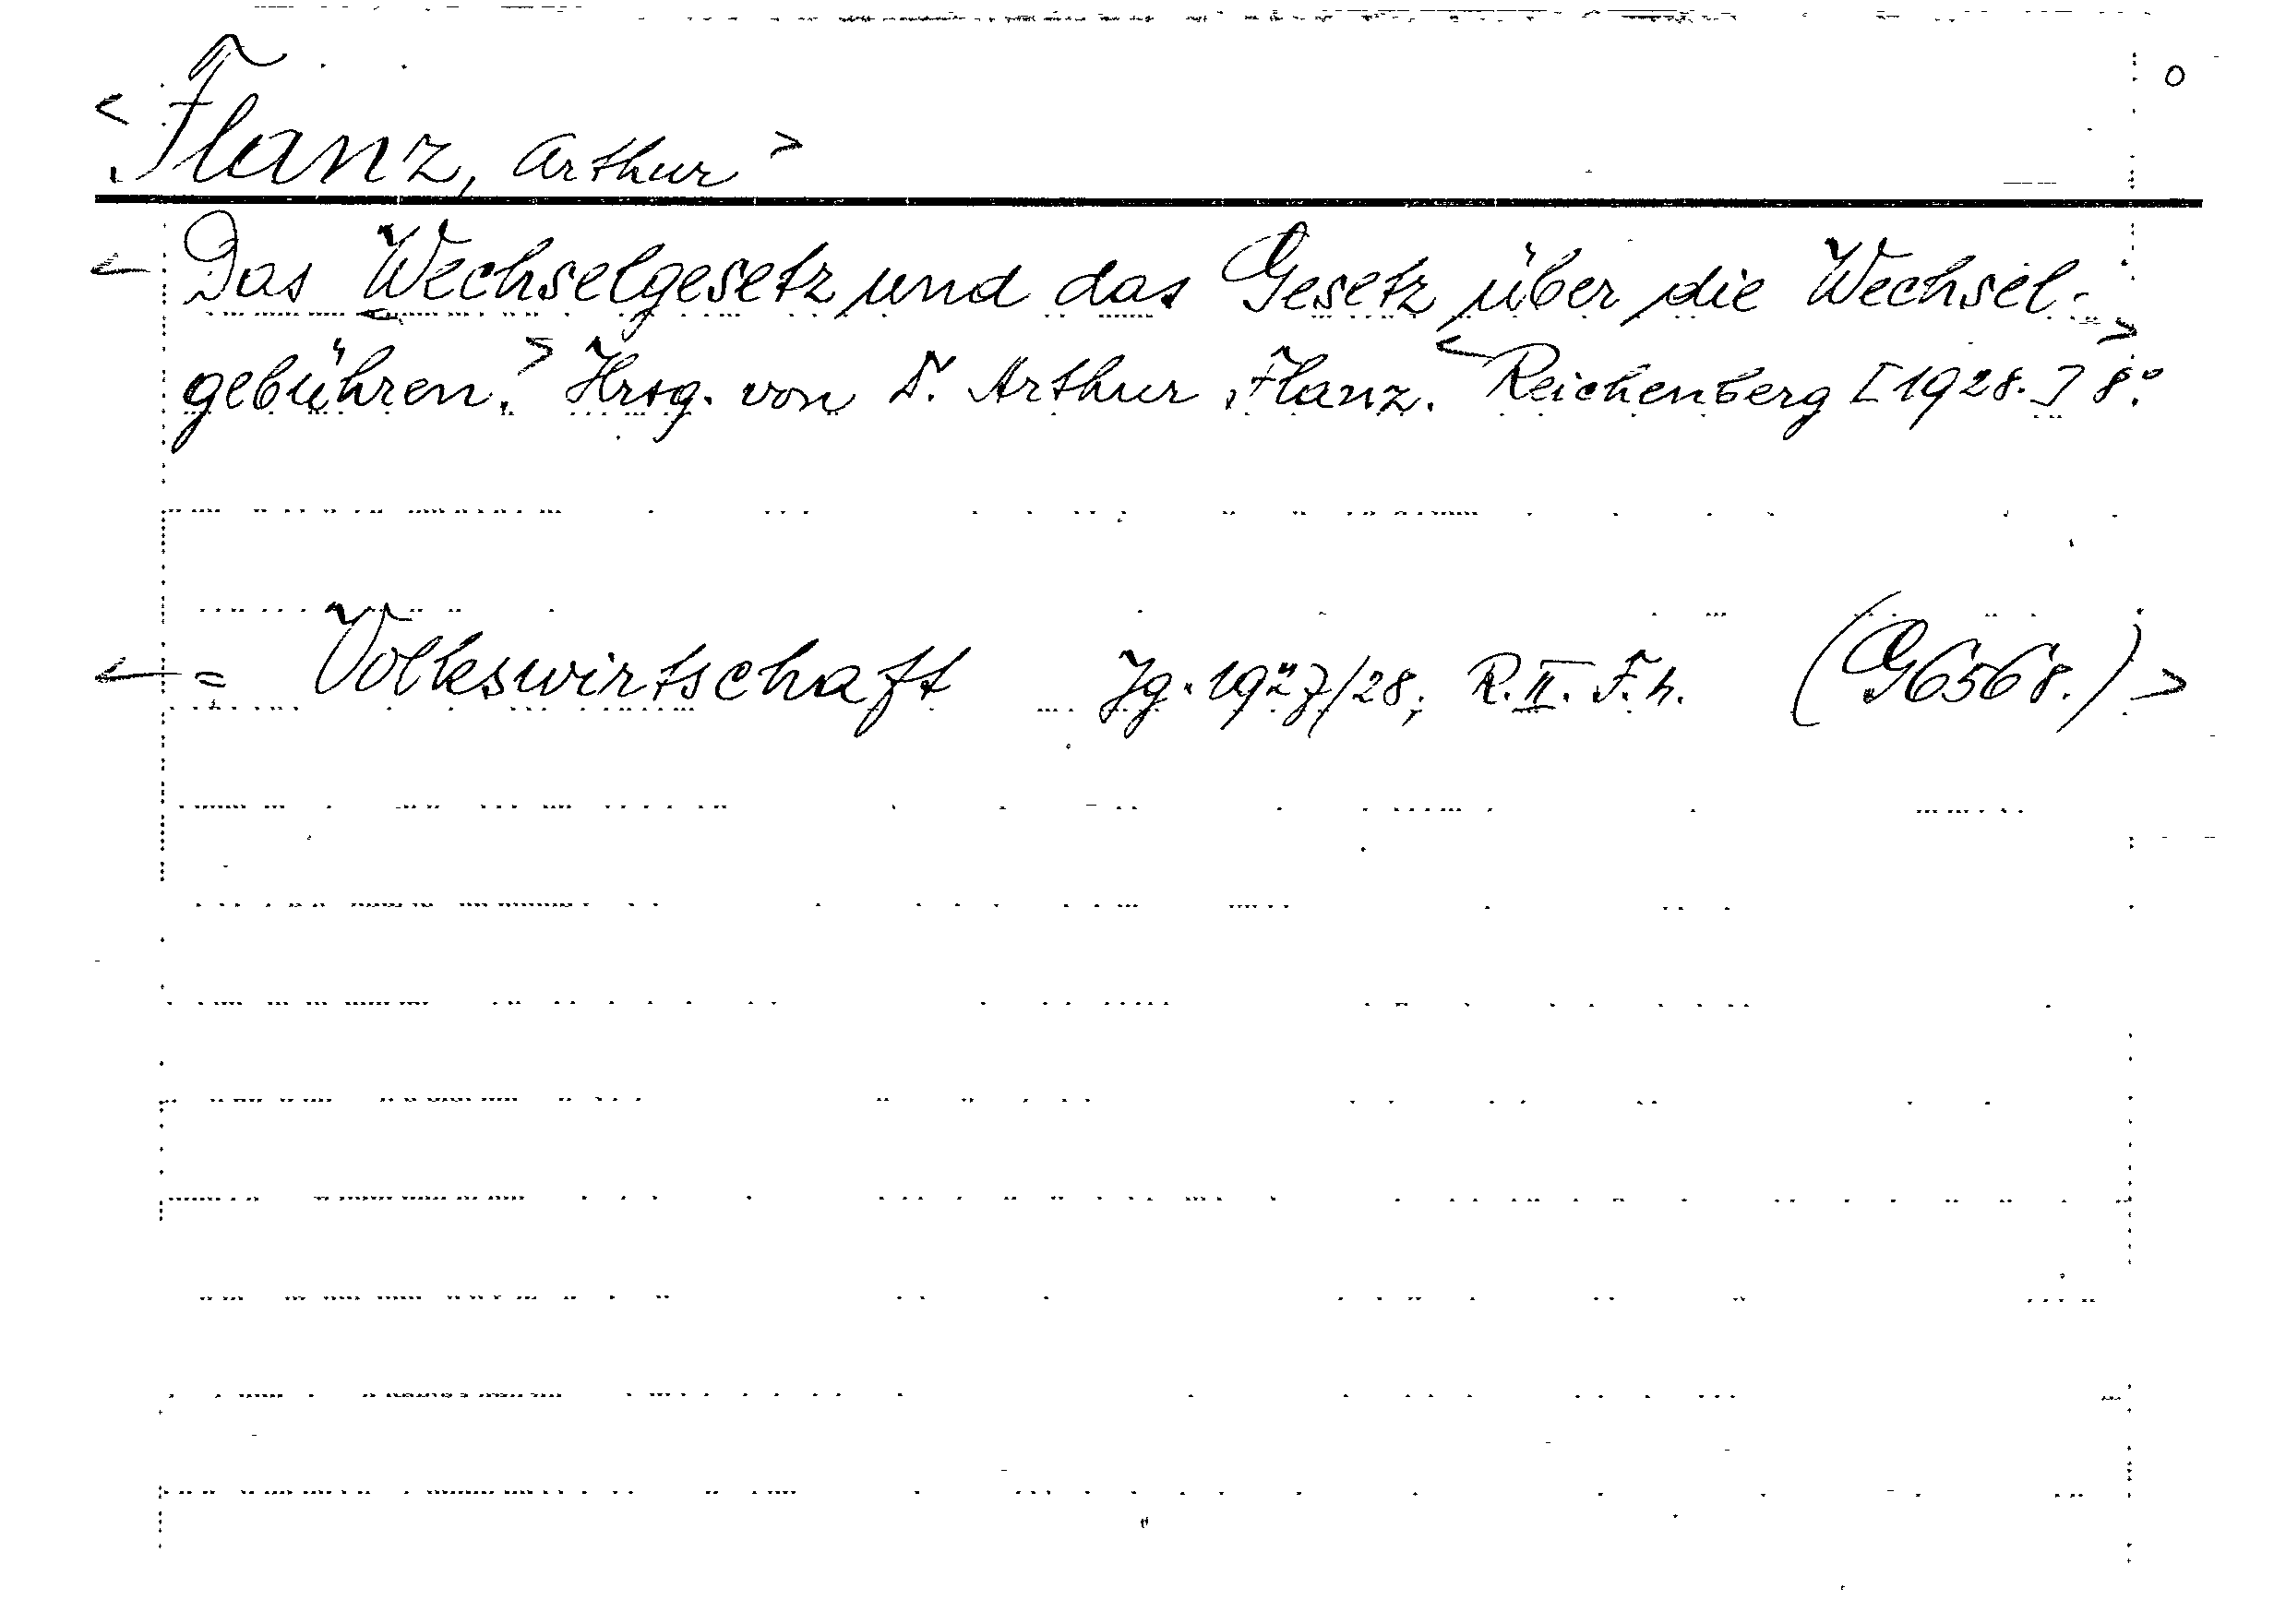 < Flanz, Arthur >
< Das Wechselgesetz und das Gesetz über die Wechsel-
gebühren. > Hrsg. von Dr. Arthur Flanz. < Reichenberg [1928.] 8°. >
< = Volkswirtschaft Jg. 1927/28, R. II. F. h. (G6568.) >